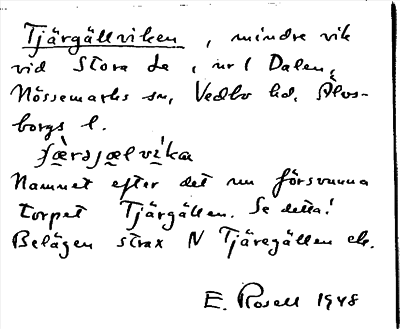 Tjärgällviken, mindre vik
vid Stora Le, nr 1 Dalen,
Nössemarks sn, Vedbo hd. Älvs-
borgs l.
Namnet efter det nu försvunna
torpet Tjärgällen. Se detta!
Belägen strax N Tjäregällen ch.
E. Rosell 1948